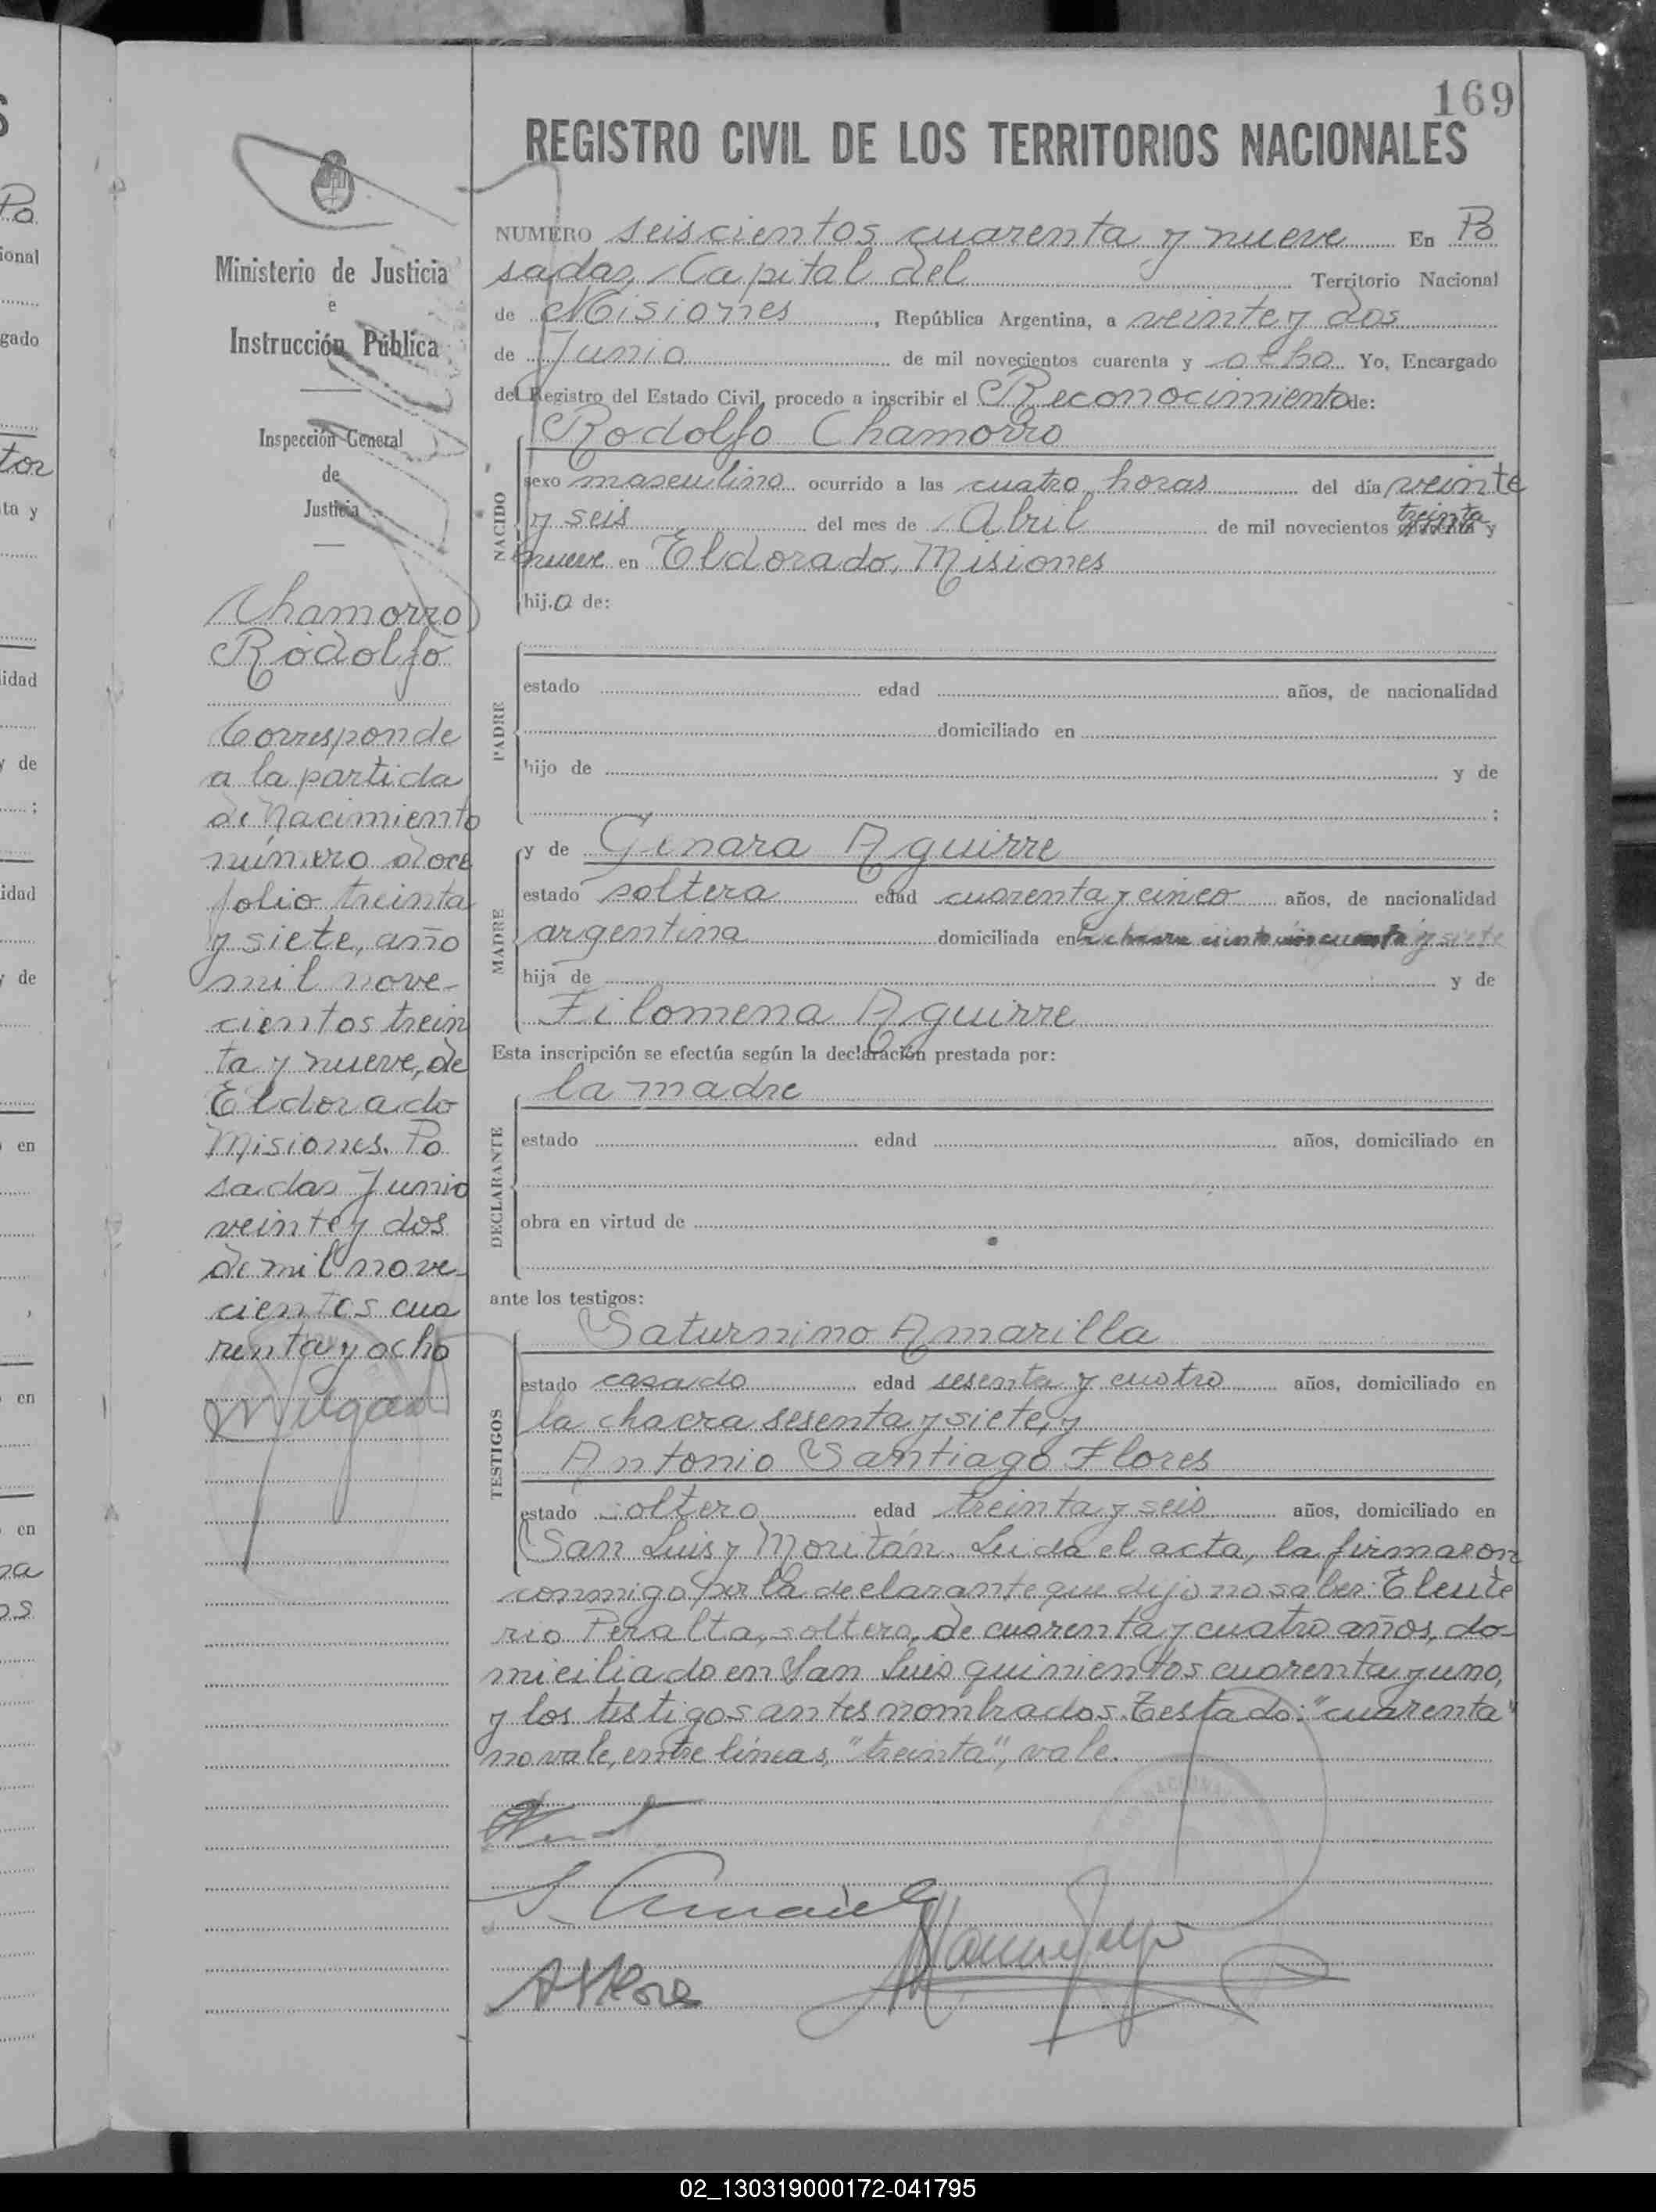 169
REGISTRO CIVIL DE LOS TERRITORIOS NACIONALES
Ministerio de Justicia
e
Instrucción Pública
Inspección General
de
Justicia
Chamorro
Rodolfo
Corresponde
a la partida
de Nacimiento
número doce
folio treinta
y siete, año
mil nove-
cientos trein
ta y nueve, de
Eldorado
Misiones. Po
sadas Junio
veinte y dos
de mil nove-
cientos cua
renta y ocho
NUMERO seiscientos cuarenta y nueve En Po
sadas, Capital del Territorio Nacional
de Misiones, República Argentina, a veinte y dos
de Junio de mil novecientos cuarenta y ocho Yo, Encargado
del Registro del Estado Civil, procedo a inscribir el Reconocimiento de:
Rodolfo Chamorro
NACIDO
sexo masculino ocurrido a las cuatro horas del día veinte
y seis del mes de Abril de mil novecientos treinta y
nueve en Eldorado, Misiones
hij.o de:
PADRE
estado edad años, de nacionalidad
domiciliado en
hijo de y de
;
y de Genara Aguirre
MADRE
estado soltera edad cuarenta y cinco años, de nacionalidad
argentina domiciliada en la chacra ciento cincuenta y siete
hija de y de
Filomena Aguirre
Esta inscripción se efectúa según la declaración prestada por:
la madre
DECLARANTE
estado edad años, domiciliado en
obra en virtud de
ante los testigos:
Saturnino Amarilla
TESTIGOS
estado casado edad sesenta y cuatro años, domiciliado en
la chacra sesenta y siete, y
Antonio Santiago Flores
estado soltero edad treinta y seis años, domiciliado en
San Luis y Moritán. Leida el acta, la firmaron
conmigo, por la declarante que dijo no saber: Eleute
rio Peralta, soltero, de cuarenta y cuatro años, do-
miciliado en San Luis quinientos cuarenta y uno,
y los testigos antes nombrados. Testado: "cuarenta"
no vale, entre líneas, "treinta", vale.
02_130319000172-041795